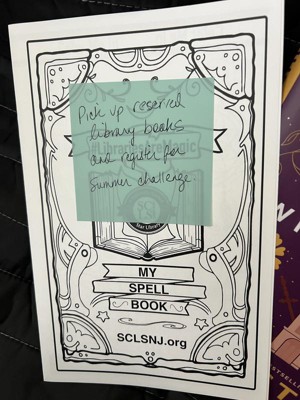 Pick up reserved
library books
and register for
Summer challenge
#LibrariesAreMagic
Star Library
MY
SPELL
BOOK
SCLSNJ.org